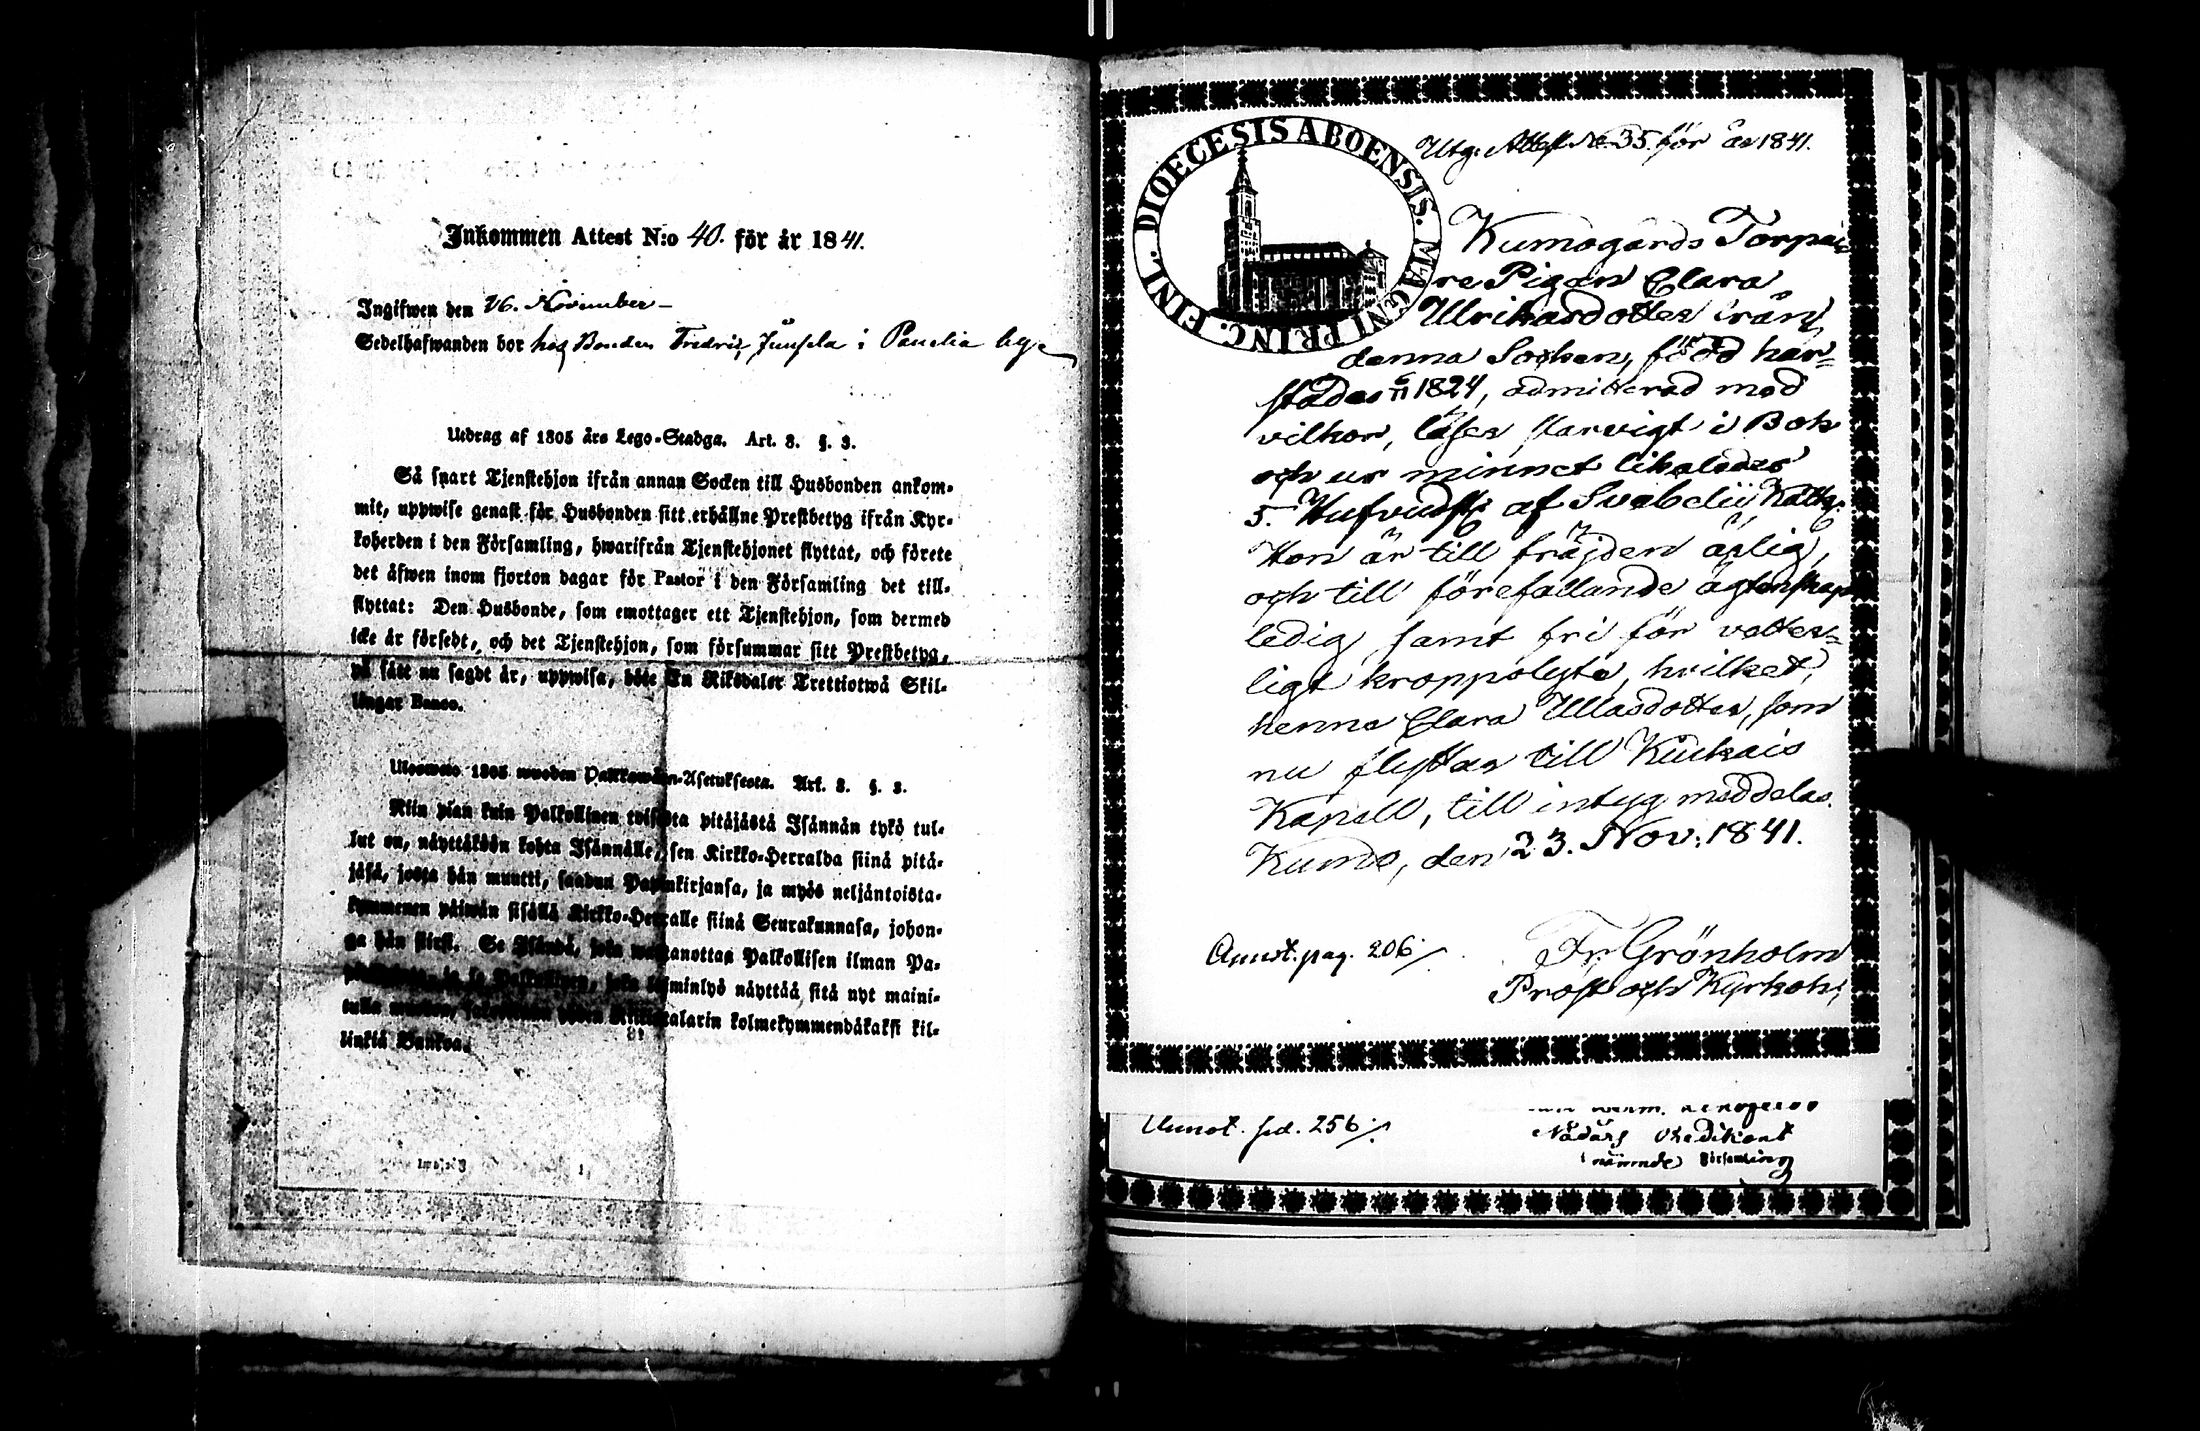 Inkommen Attest N:o 40. för år 1841.
Ingifwen den 26. November
Sedelhafwanden bor hos Bonden Fredric Juusela i Panelia by
Utdrag af 1805 års Lego-Stadga. Art. 3. §. 3.
Så snart Tjenstehjon ifrån annan Socken till Husbonden ankom-
mit, uppwise genast för Husbonden sitt erhållne Prestbetyg ifrån Kyr-
koherden i den Församling, hwarifrån Tjenstehjonet flyttat, och förete
det äfwen inom fjorton dagar för Pastor i den Församling det till-
flyttat: Den Husbonde, som emottager ett Tjenstehjon, som dermed
icke är försedt, och det Tjenstehjon, som försummar sitt Prestbetyg,
på sätt nu sagdt är, uppwisa, böte En Riksdaler Trettiotwå Skil-
lingar Banco.
Ulosweto 1805 wuoden Palkkawäen-Asetuksesta. Art. 3. §. 3.
Niin pian kuin Palkollinen toisesta pitäjästä Isännän tykö tul-
lut on, näyttäköön kohta Isännälle, sen Kirkko-Herralda siinä pitä-
jäsä, josta hän muutti, saadun Papinkirjansa, ja myös neljäntoista-
kymmenen päiwän sisällä Kirkko-Herralle siinä Seurakunnasa, johon-
ga hän siirsi. Se Isändä, joka wastanottaa Palkollisen ilman Pa-
ja se Palkollinen, joka laiminlyö näyttää sitä nyt maini-
tulla kolmekymmendäkaksi kil-
linkiä Bankoa.
DIOECESIS ABOENSIS. MAGNI PRINC. FINL.
Utg. Attest No 35. för år 1841.
Kumogårds Torpa-
re Pigan Clara
Ulrikasdotter från
denna Socken, född här-
städes 6/11 1824, admitterad med
vilkor, läser starvigt i Bok
och ur minnet likaledes
5. Hufvudst. af Svebelii Katkg.
Hon är till fräjden ärlig,
och till förefallande ägtenskap
ledig samt fri för vatter-
ligt kroppslyte, hvilket,
henne Clara Ullasdotter, som
nu flyttar till Kiukais
Kapell, till intyg meddelas.
Kumo, den 23. Nov: 1841.
Fr. Grönholm
Annot. pag. 206
Prost och Kyrkoh:
Annot. pag. 256
Nådårs Predikant
i nämnde Församling